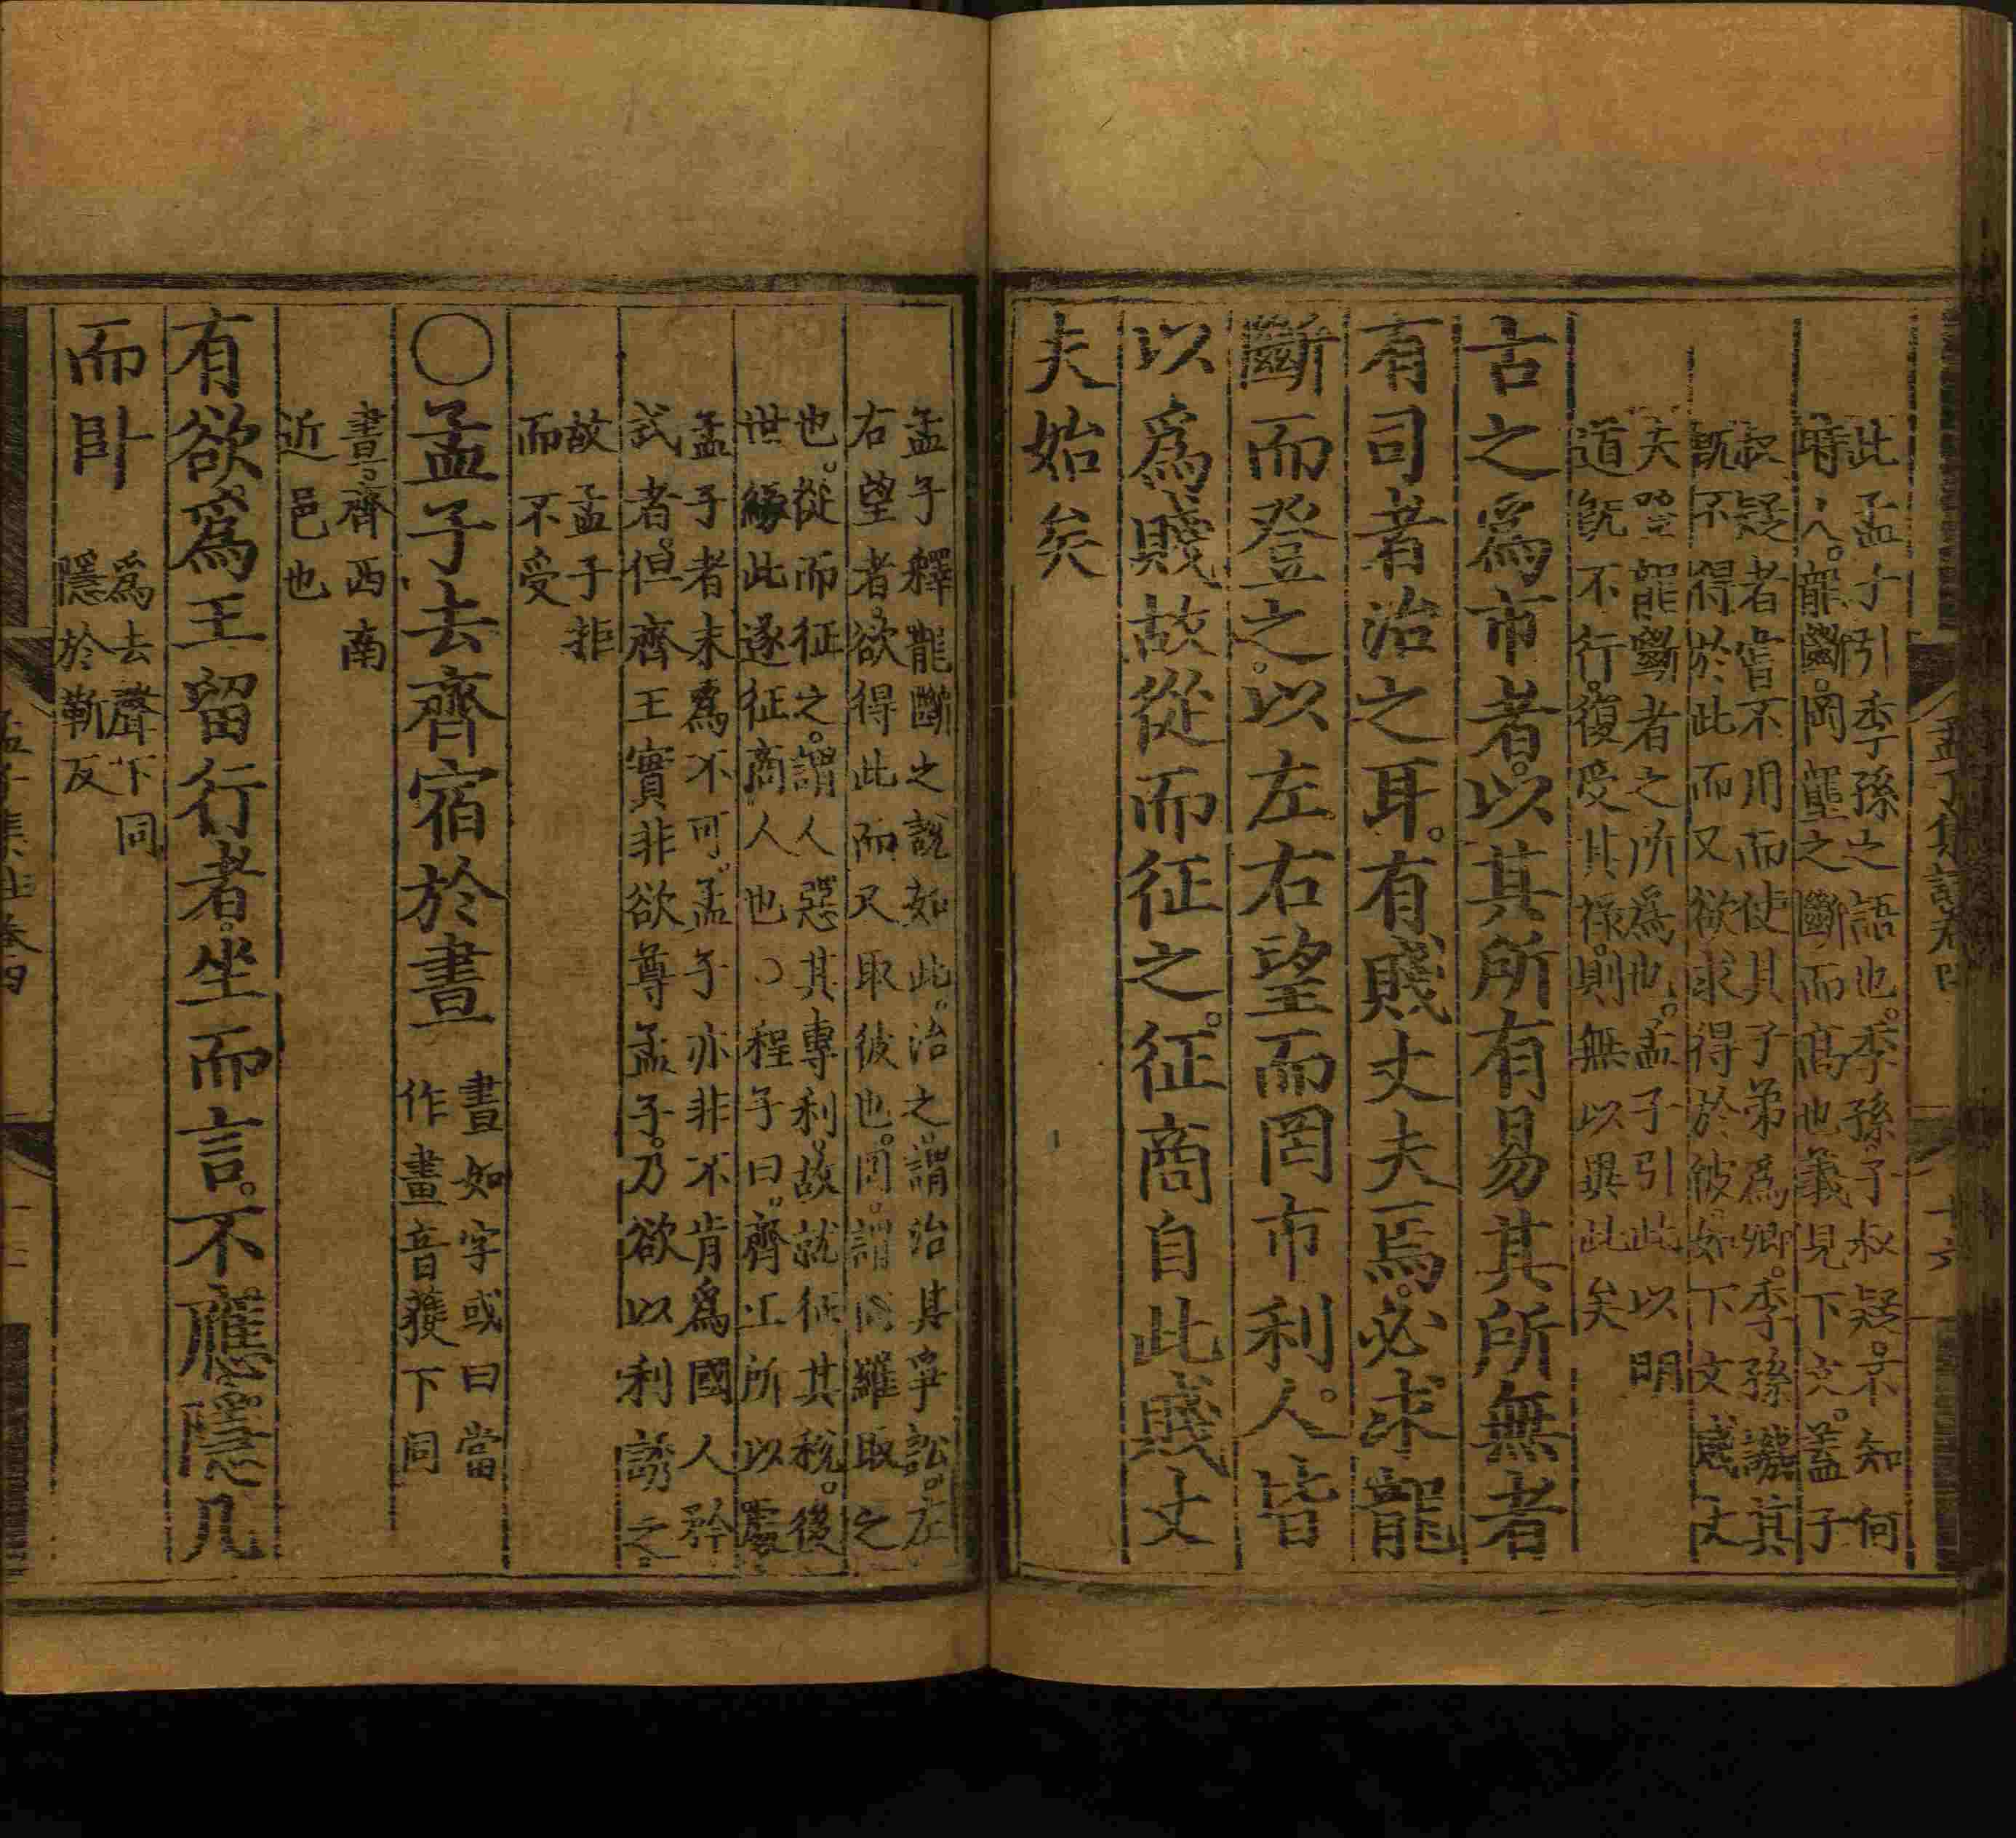 此孟子引季孫之語也。季孫子叔疑。不知何
時人。龍斷。岡壟之斷而高也義見下文。蓋子
叔疑者嘗不用而使其子弟爲卿。季孫譏其
既不得於此而又欲求得於彼。如下文賤丈
夫登龍斷者之所爲也。孟子引此以明
道既不行。復受其祿。則無以異此矣
古之爲市者。以其所有易其所無者
有司者治之耳。有賤丈夫焉。必求龍
斷而登之。以左右望而罔市利。人皆
以爲賤故從而征之。征商自此賤丈
夫始矣
孟子釋龍斷之說如此。治之謂治其爭訟。左
右望者。欲得此而又取彼也。罔。謂罔羅取之
也。從而征之。謂人惡其專利。故就征其稅。後
世緣此遂征商人也○程子曰。齊王所以處
孟子者未爲不可。孟子亦非不肯爲國人矜
式者。但齊王實非欲尊孟子。乃欲以利誘之。
故孟子拒
而不受
○孟子去齊宿於晝
晝如字或曰當
作畫音獲下同
晝。齊西南
近邑也
有欲爲王留行者。坐而言。不應。隱几
而卧
爲去聲下同
隱於靳反
孟子集註卷四